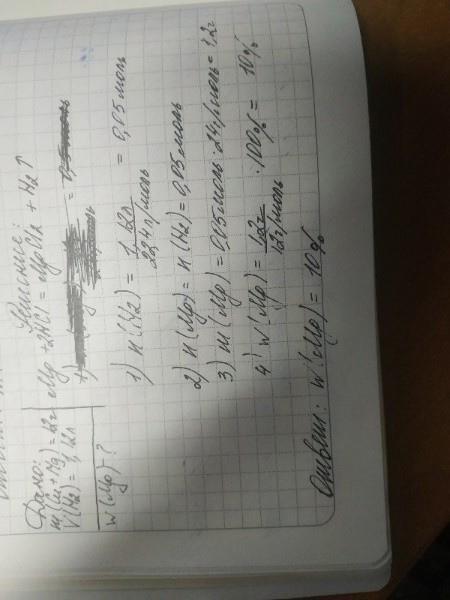 Дано:
m(Cu + Mg) = 12г
V(H2) = 1,12л
w(Mg) - ?
Решение:
Mg + 2HCl = MgCl2 + H2↑
1) n(H2) = 1,12л / 22,4 л/моль = 0,05 моль
2) n(Mg) = n(H2) = 0,05 моль
3) m(Mg) = 0,05 моль · 24 г/моль = 1,2г
4) w(Mg) = 1,2г / 12 г/моль · 100% = 10%
Ответ: w(Mg) = 10%